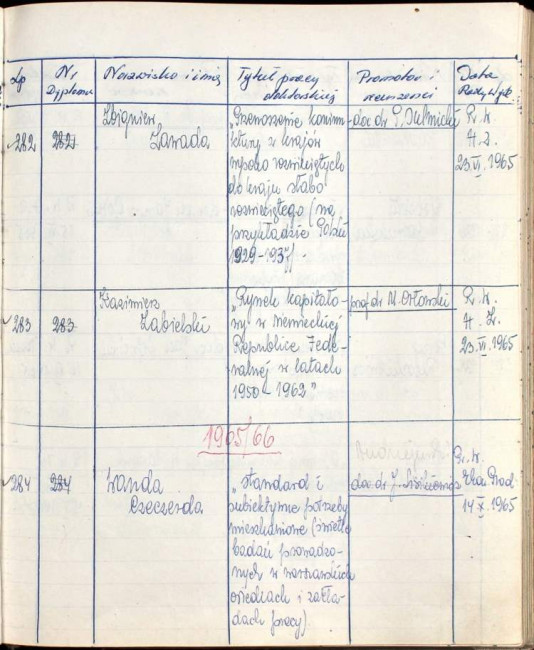 Lp Nr Dyplomu Nazwisko i imię Tytuł pracy doktorskiej Promotor i recenzenci Data Rady Wydz.
282 282 Zbigniew Zawada
"Przenoszenie koniunktury z krajów
wysoko rozwiniętych
do kraju słabo
rozwiniętego (na
przykładzie Polski
1929-1937)".
doc dr P. Sulmicki
23.VI.1965
283 283 Kazimierz Zabielski
"Rynek kapitało-
wy w Niemieckiej
Republice Fede-
ralnej w latach
1950 - 1962"
prof dr M. Orłowski
23.VI.1965
1965/66
284 284 Wanda Czeczerda
"Standard i
subiektywne potrzeby
mieszkaniowe (w świetle
badań prowadzo-
nych w warszawskich
osiedlach i zakła-
dach pracy)
doc dr J.
Ekon. Prod.
14 X 1965